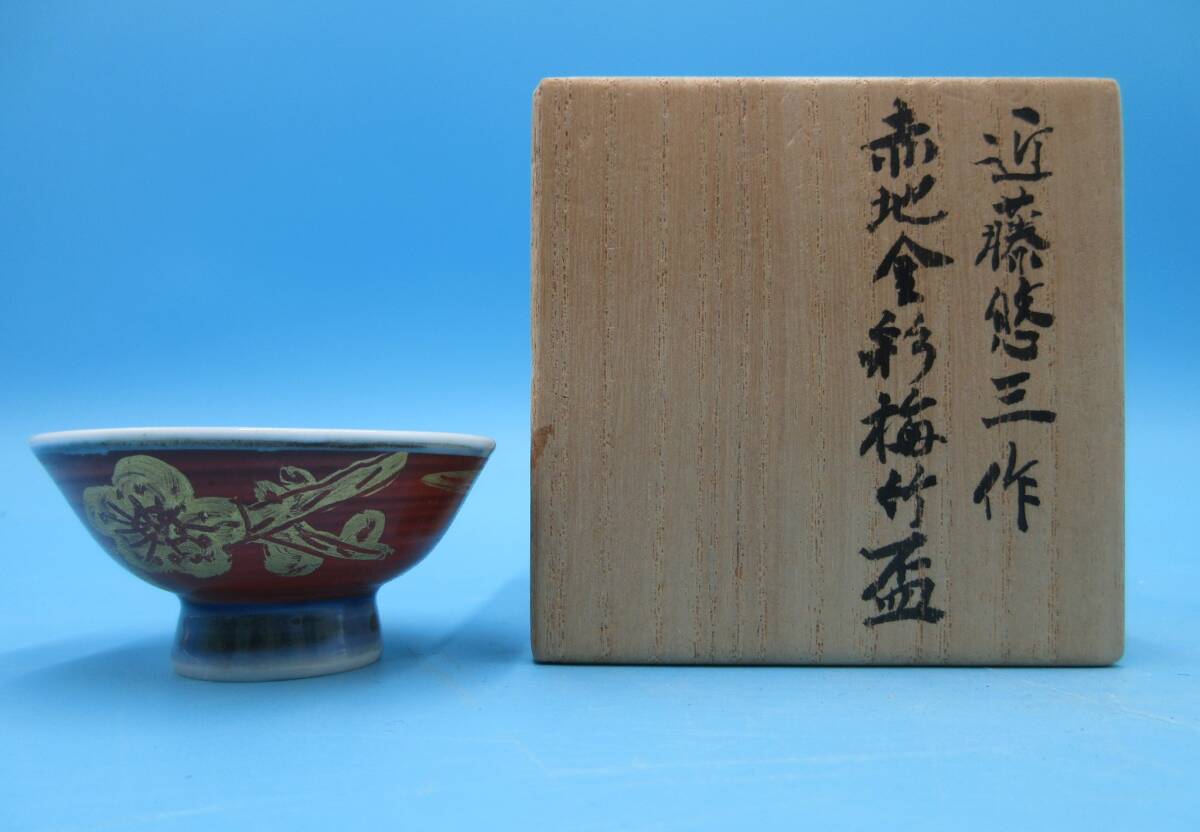 近藤悠三作
赤地金彩梅竹盃